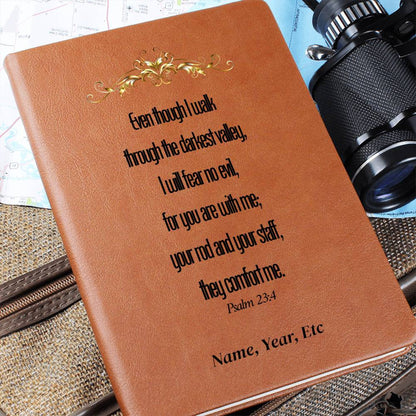 Even though I walk
through the darkest valley,
I will fear no evil,
for you are with me;
your rod and your staff,
they comfort me.
Psalm 23:4
Name, Year, Etc